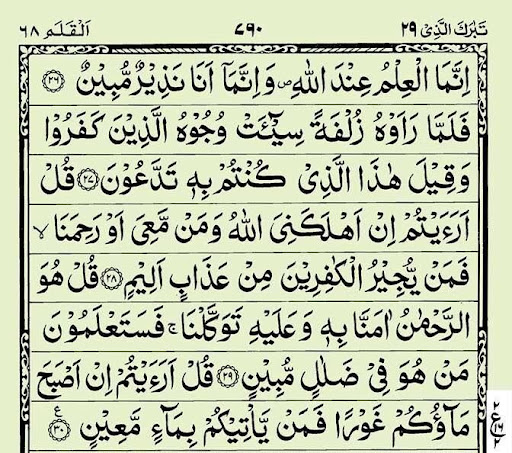 تَبٰرَكَ الَّذِیْ ٢٩ ٧٩٠ اَلْقَلَم ٦٨
اِنَّمَا الْعِلْمُ عِنْدَ اللّٰهِ ۪ وَاِنَّمَاۤ اَنَا نَذِیْرٌ مُّبِیْنٌ ﴿٢٦﴾
فَلَمَّا رَاَوْهُ زُلْفَةً سِیْٓـَٔتْ وُجُوْهُ الَّذِیْنَ كَفَرُوْا
وَقِیْلَ هٰذَا الَّذِیْ كُنْتُمْ بِهٖ تَدَّعُوْنَ ﴿٢٧﴾ قُلْ
اَرَءَیْتُمْ اِنْ اَهْلَكَنِیَ اللّٰهُ وَمَنْ مَّعِیَ اَوْ رَحِمَنَا ۙ
فَمَنْ یُّجِیْرُ الْكٰفِرِیْنَ مِنْ عَذَابٍ اَلِیْمٍ ﴿٢٨﴾ قُلْ هُوَ
الرَّحْمٰنُ اٰمَنَّا بِهٖ وَعَلَیْهِ تَوَكَّلْنَا ۚ فَسَتَعْلَمُوْنَ
مَنْ هُوَ فِیْ ضَلٰلٍ مُّبِیْنٍ ﴿٢٩﴾ قُلْ اَرَءَیْتُمْ اِنْ اَصْبَحَ
مَآؤُكُمْ غَوْرًا فَمَنْ یَّاْتِیْكُمْ بِمَآءٍ مَّعِیْنٍ ﴿٣٠﴾ ع
٢
ع ١٦
٢